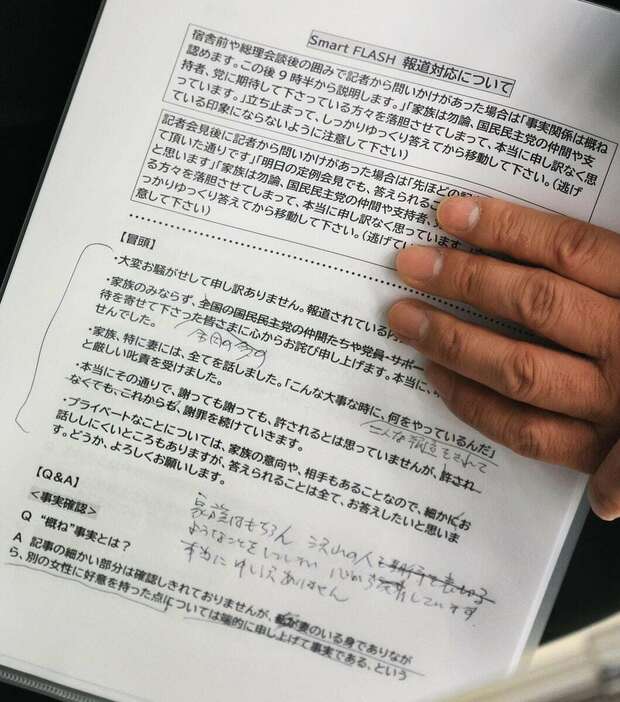 Smart FLASH 報道対応について
宿舎前や総理会談後の囲みで記者から問いかけがあった場合は「事実関係は概ね
認めます。この後9時半から説明します。」「家族は勿論、国民民主党の仲間や支
持者、党に期待して下さっている方々を落胆させてしまって、本当に申し訳なく思
っています。」立ち止まって、しっかりゆっくり答えてから移動して下さい。(逃げ
ている印象にならないように注意して下さい)
記者会見後に記者から問いかけがあった場合は「先ほどの記
て頂いた通りです」「明日の定例会見でも、答えられるこ
と思います」「家族は勿論、国民民主党の仲間や支持者、
る方々を落胆させてしまって、本当に申し訳なく思っています
っかりゆっくり答えてから移動して下さい。(逃げてい
意して下さい)
【冒頭】
・大変お騒がせして申し訳ありません。報道されている内
・家族のみならず、全国の国民民主党の仲間たちや党員・サポー
待を寄せて下さった皆さまに心からお詫び申し上げます。本当に、
せんでした。
全国の多の
・家族、特に妻には、全てを話しました。「こんな大事な時に、何をやっているんだ」
と厳しい叱責を受けました。
こんな報道もされて
・本当にその通りで、謝っても謝っても、許されるとは思っていませんが、許され
なくても、これからも、謝罪を続けていきます。
・プライベートなことについては、家族の意向や、相手もあることなので、細かにお
話ししにくいところもありますが、答えられることは全て、お答えしたいと思いま
す。どうか、よろしくお願いします。
【Q&A】
<事実確認>
家族はもちろん 沢山の人を
ようなことをしてしまい 心から
本当に申し訳ありません
Q “概ね”事実とは?
A 記事の細かい部分は確認しきれておりませんが、私が妻のいる身でありなが
ら、別の女性に好意を持った点については端的に申し上げて事実である、という